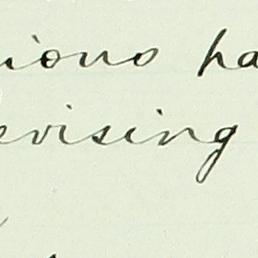 ions ha
evising